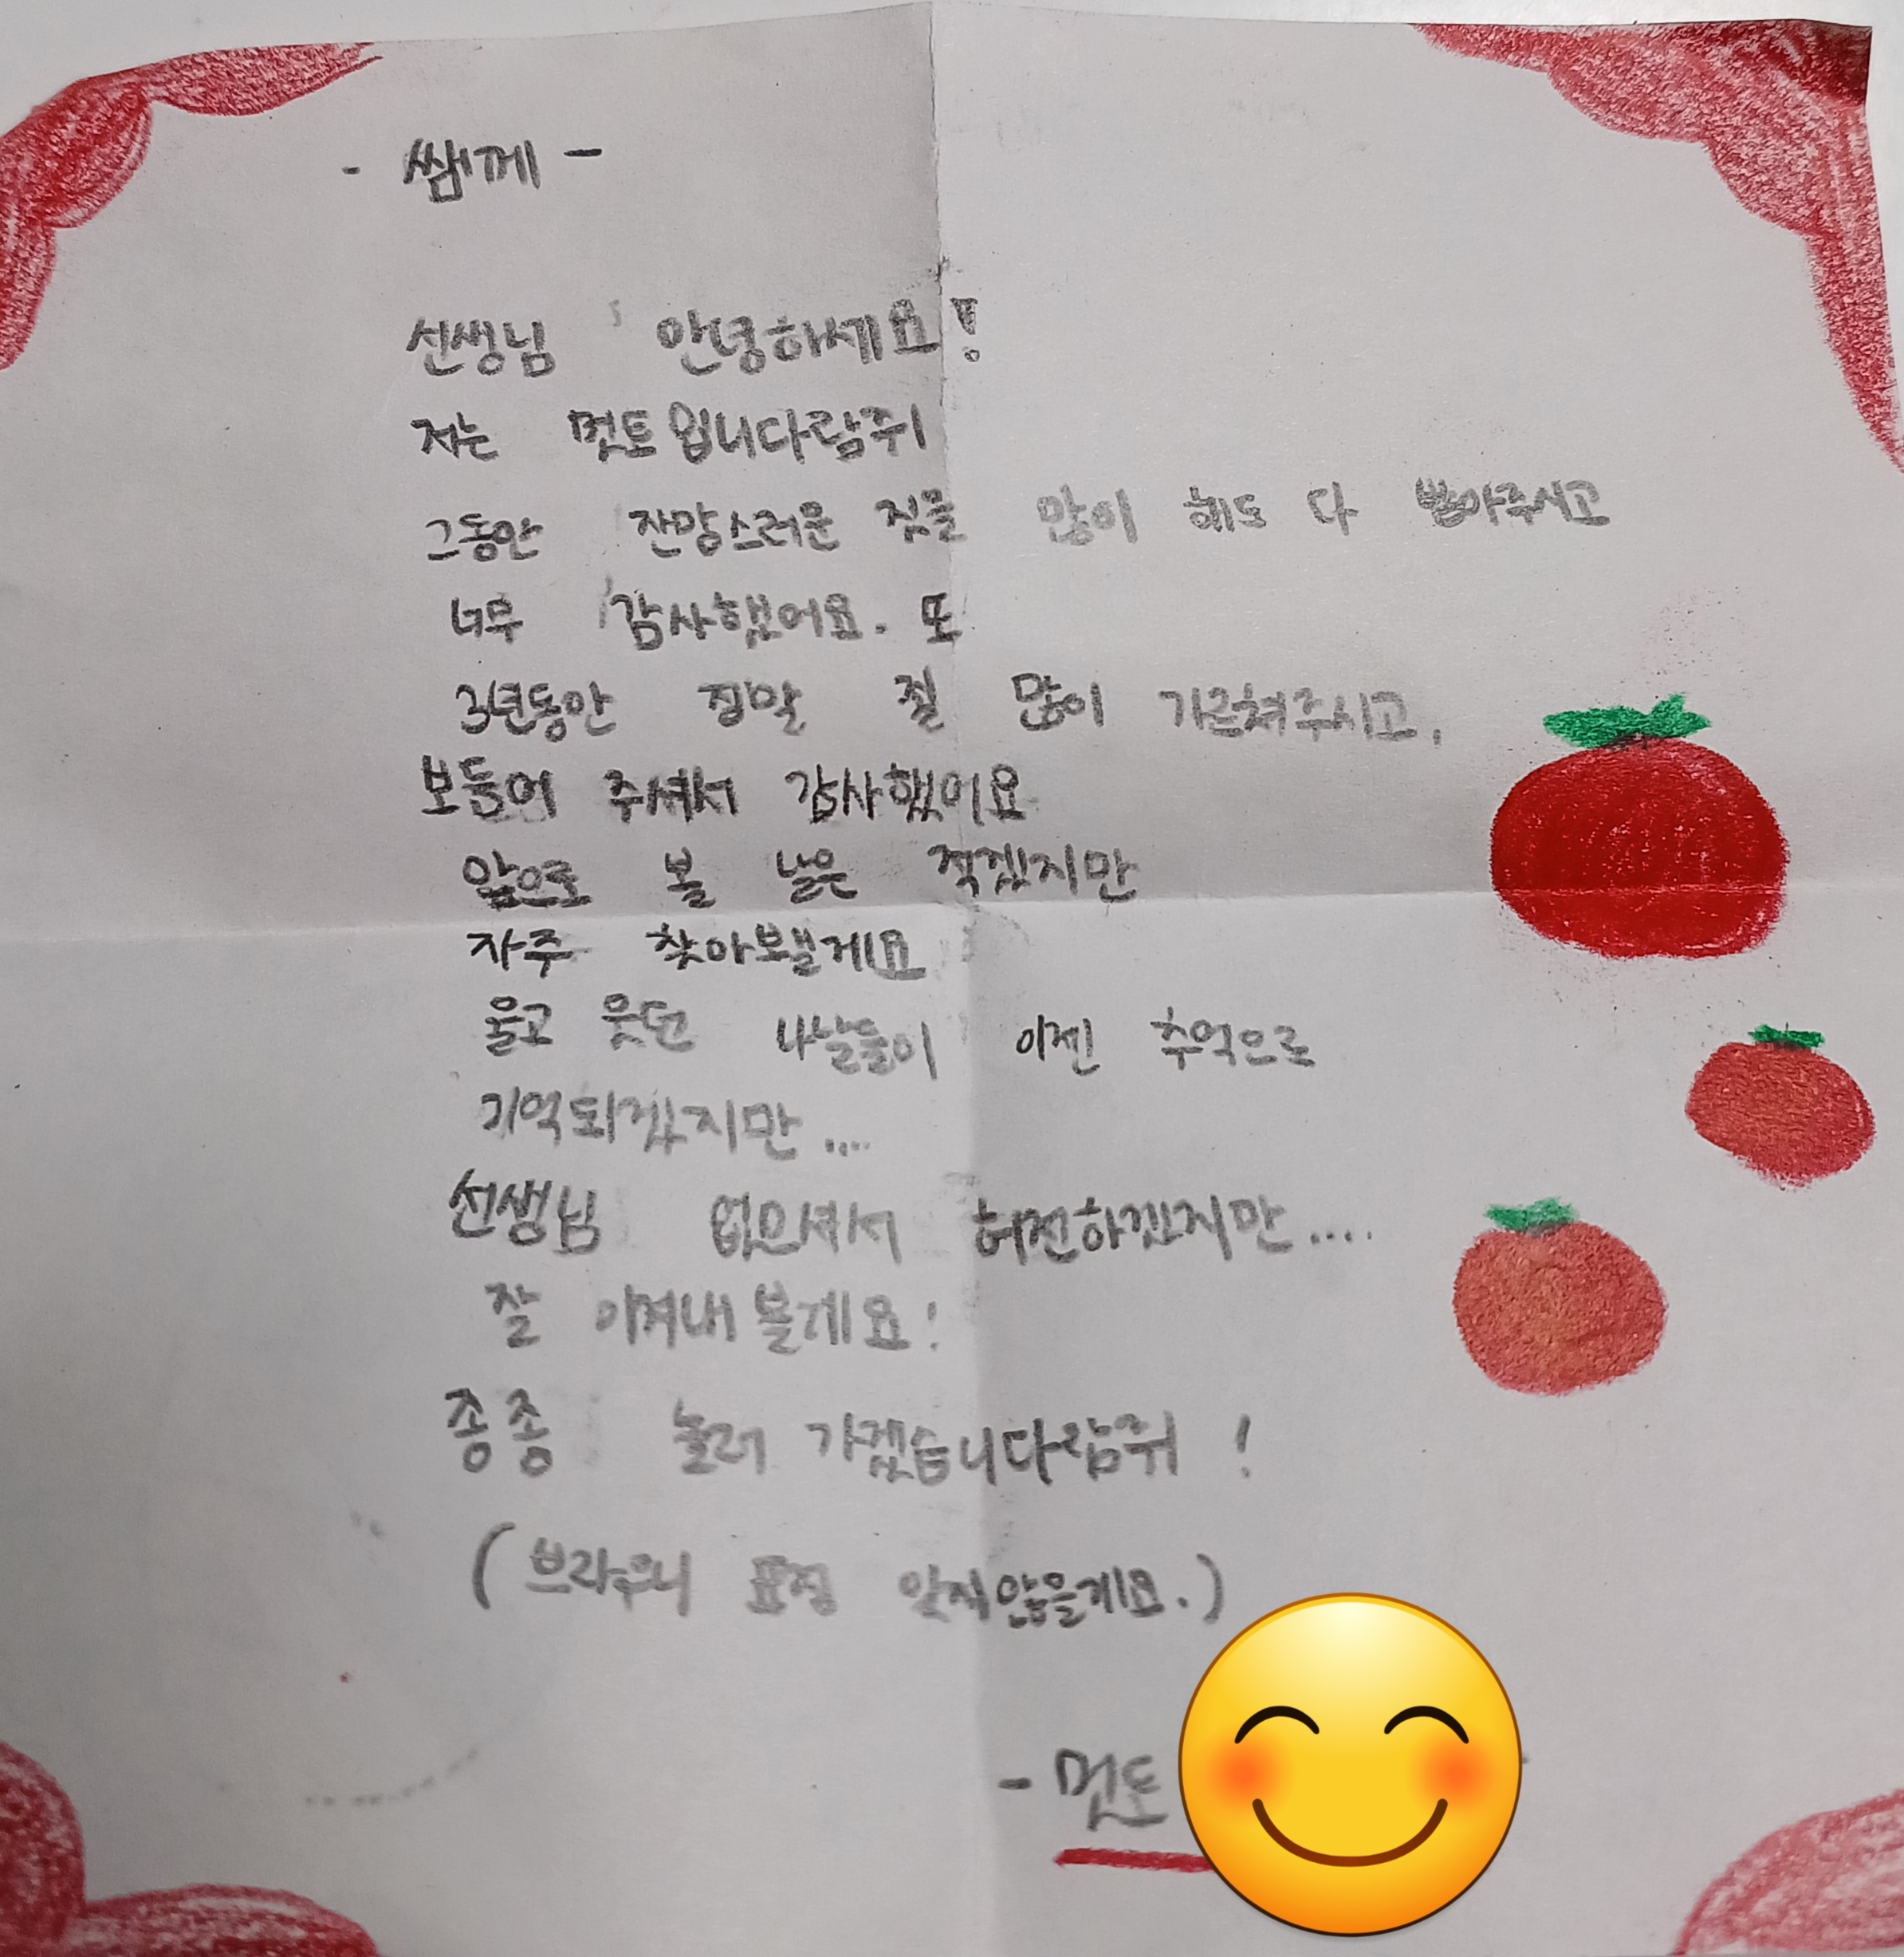 - 쌤께 -
선생님 안녕하세요!
저는 먼토입니다람쥐
그동안 잔망스러운 짓을 많이 해도 다 받아주시고
너무 감사했어요. 또
3년동안 정말 잘 많이 가르쳐주시고,
보듬어 주셔서 감사했어요
앞으로 볼 날은 적겠지만
자주 찾아뵐게요
울고 웃던 나날들이 이젠 추억으로
기억되겠지만....
선생님 없으셔서 허전하겠지만....
잘 이겨내볼게요!
종종 놀러 가겠습니다람쥐!
(브라우니 표정 잊지않을게요.)
- 먼토